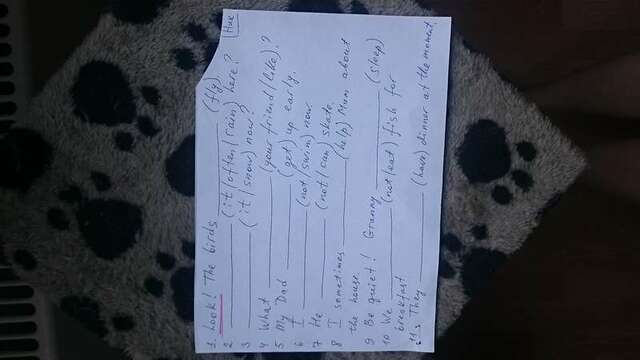 1. Look! The birds ____________ (fly).
2 ____________ (it/often/rain) here?
3 ____________ (it/snow) now?
4 What ____________ (your friend/like)?
5 My Dad ____________ (get) up early.
6 I ____________ (not/swim) now.
7 He ____________ (not/can) skate.
8 I sometimes ____________ (help) Mum about
the house.
9 Be quiet! Granny ____________ (sleep)
10 We ____________ (not/eat) fish for
breakfast
11. They ____________ (have) dinner at the moment.